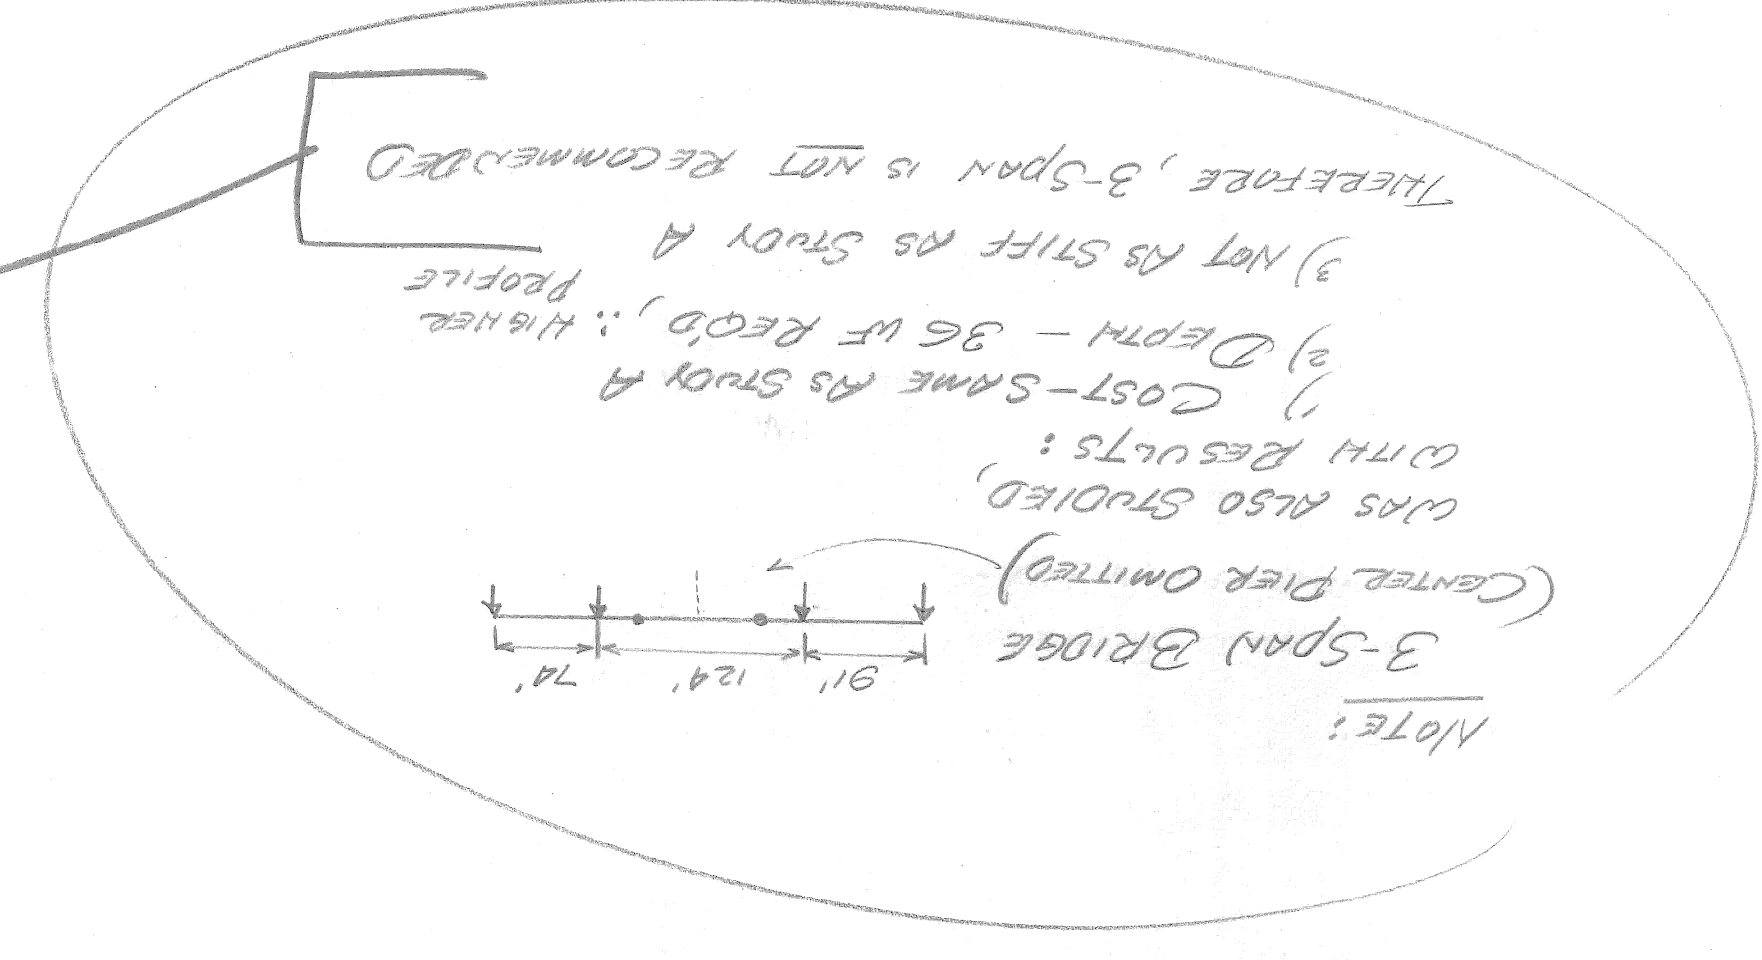 NOTE:
3-SPAN BRIDGE
91' 124' 74'
(CENTER PIER OMITTED)
WAS ALSO STUDIED,
WITH RESULTS:
1) COST-SAME AS STUDY A
2) DEPTH - 36 WF REQ'D, ∴ HIGHER
PROFILE
3) NOT AS STIFF AS STUDY A
THEREFORE, 3-SPAN IS NOT RECOMMENDED